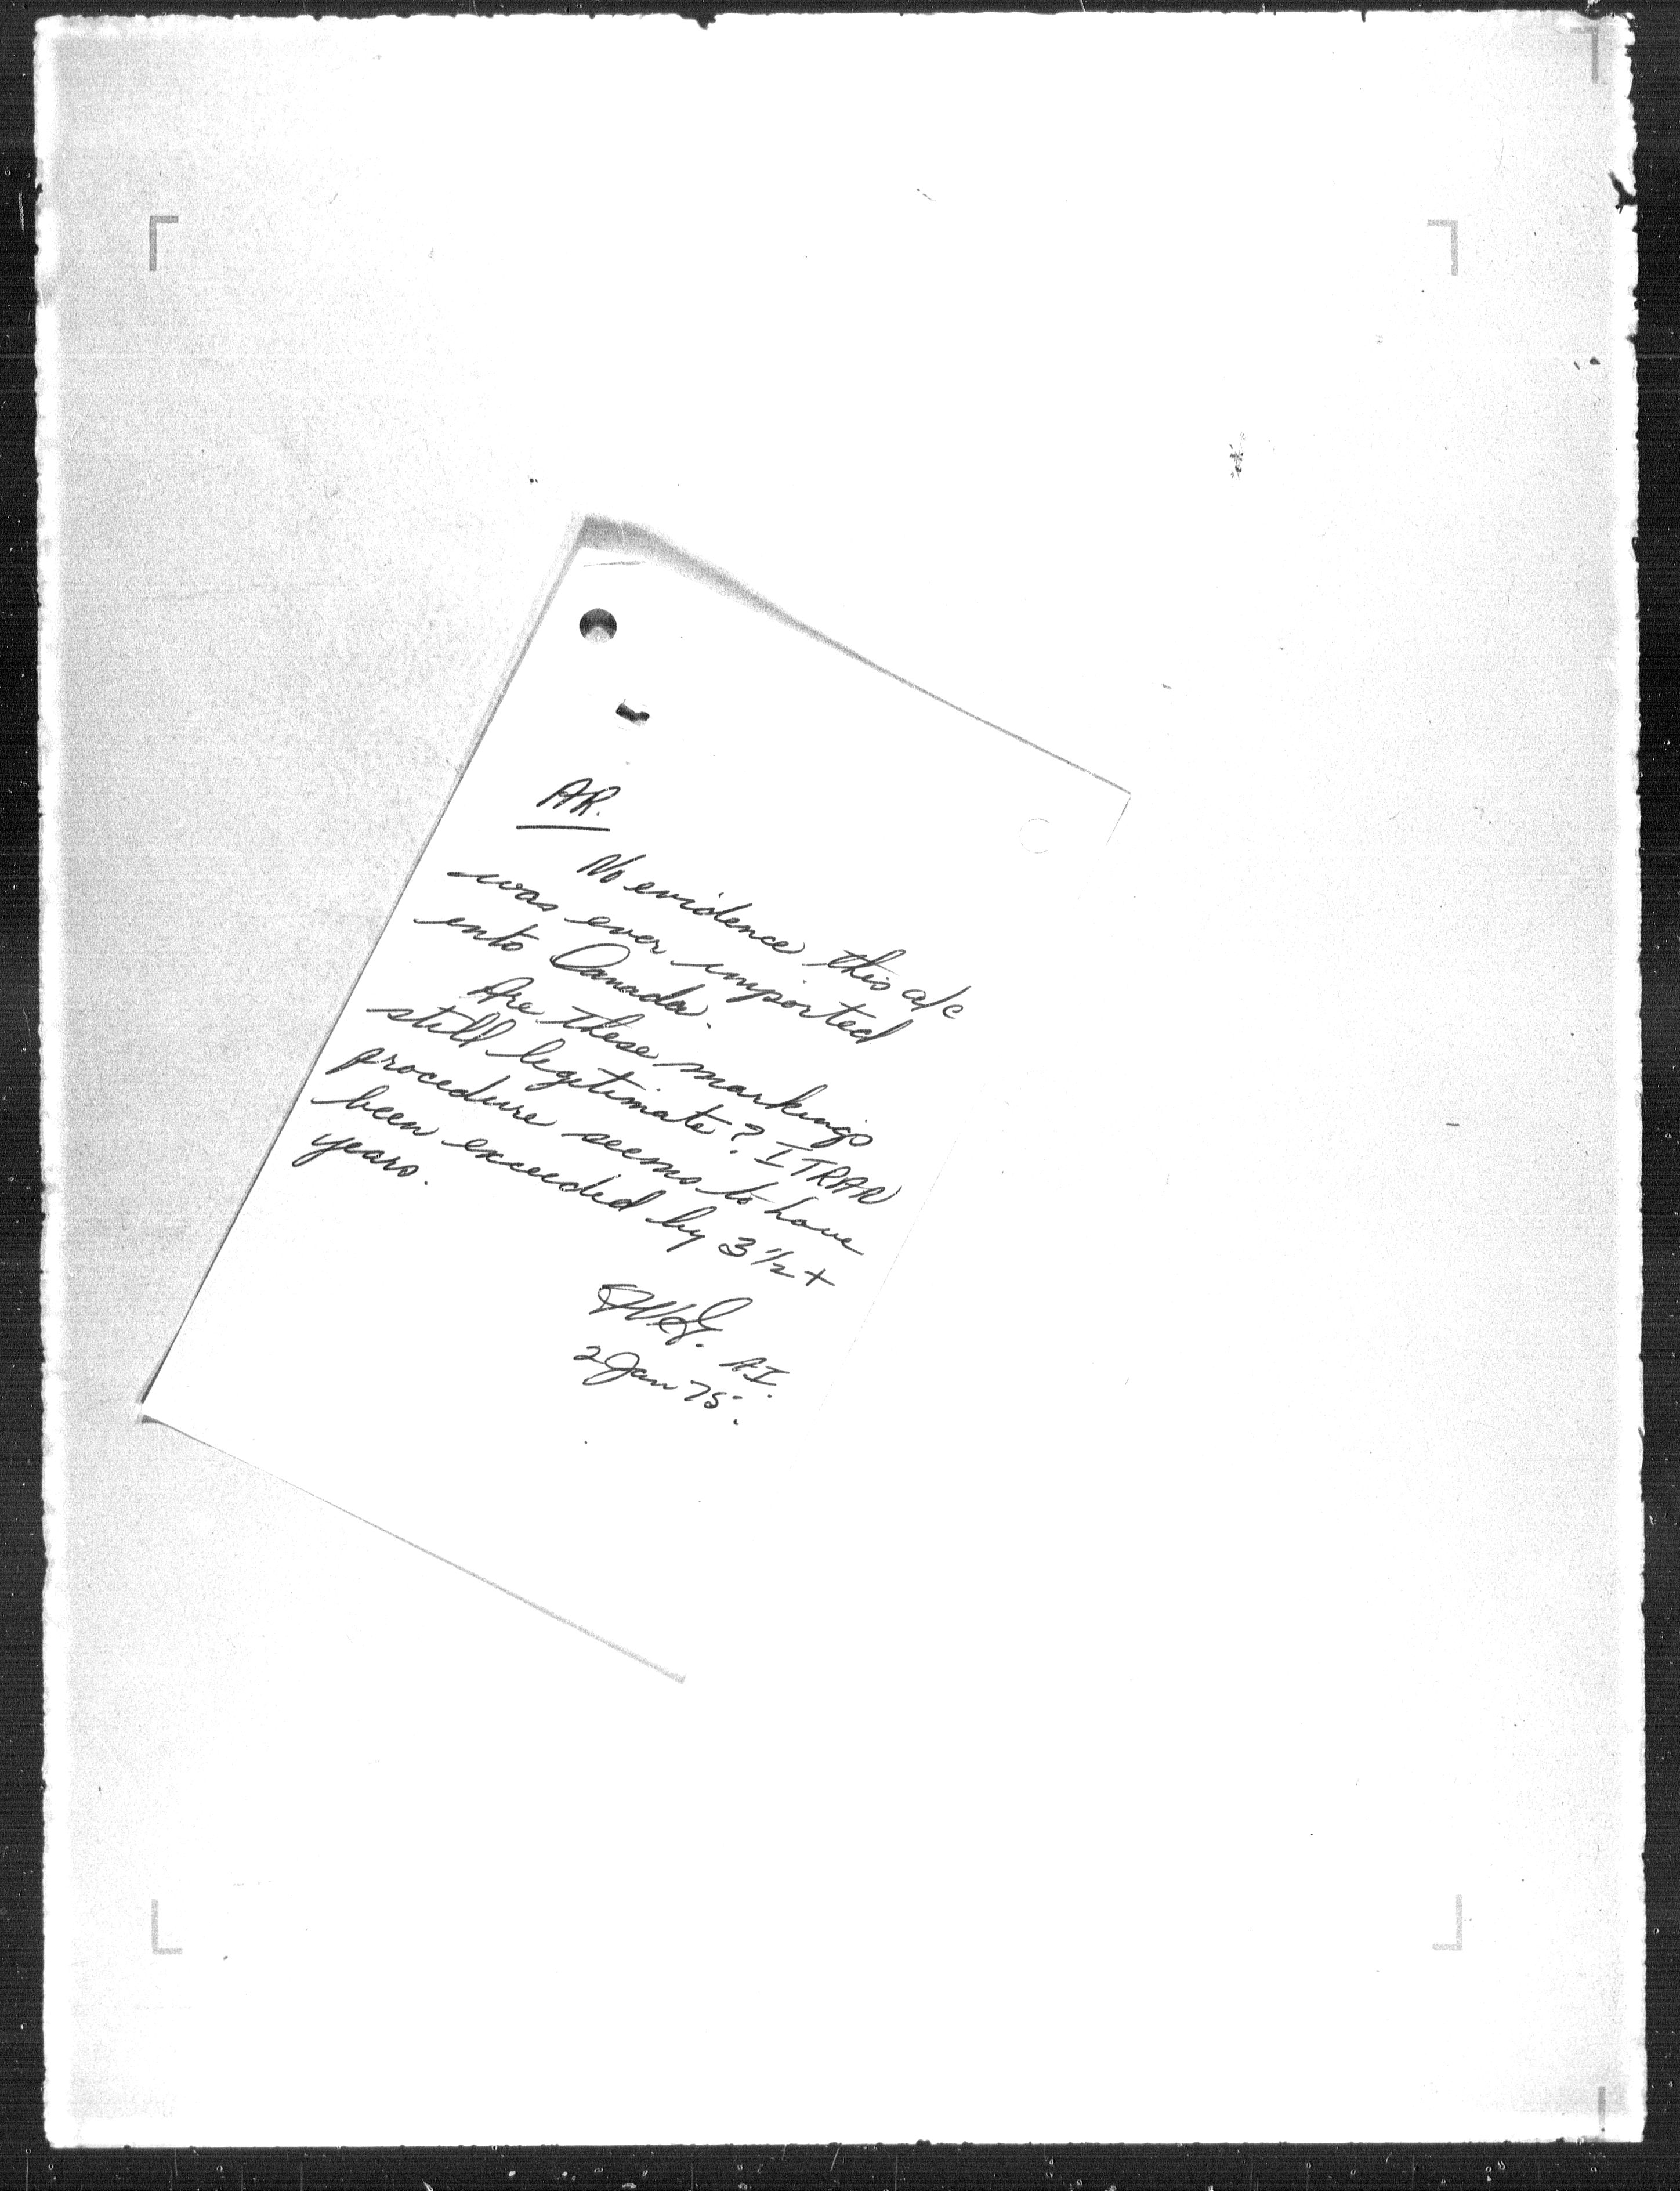 AR.
No evidence this a/c
was ever imported
into Canada.
Are these markings
still legitimate? ITRAR
procedure seems to have
been exceeded by 3 1/2 +
years.
A.I.
2 Jan 75.